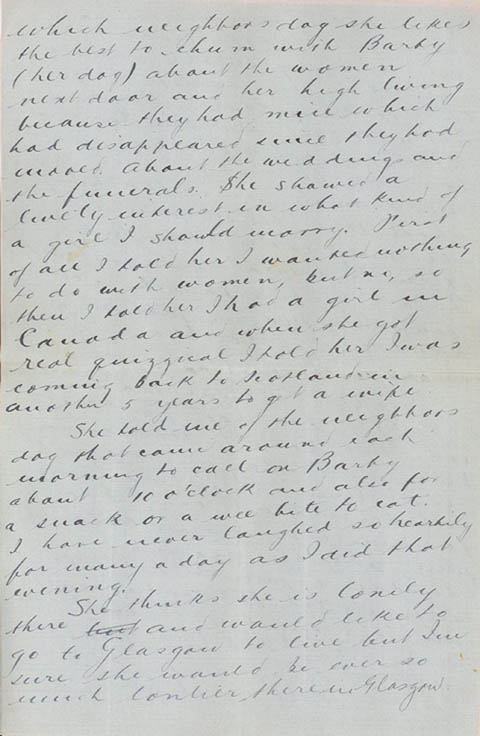 which neighbors dog she likes
the best to chum with Barby
(her dog) about the women
next door and her high living
because they had mice which
had disappeared since they had
moved. About the weddings and
the funerals. She showed a
lively interest in what kind of
a girl I should marry. First
of all I told her I wanted nothing
to do with women, but no, so
then I told her I had a girl in
Canada and when she got
real quizqual I told her I was
coming back to Scotland in
another 5 years to get a wife.
She told me of the neighbors
dog that came around each
morning to call on Barby
about 10 o'clock and also for
a snack or a wee bite to eat.
I have never laughed so heartily
for many a day as I did that
evening.
She thinks she is lonely
there but and would like to
go to Glasgow to live but I'm
sure she would be ever so
much lonlier there in Glasgow.